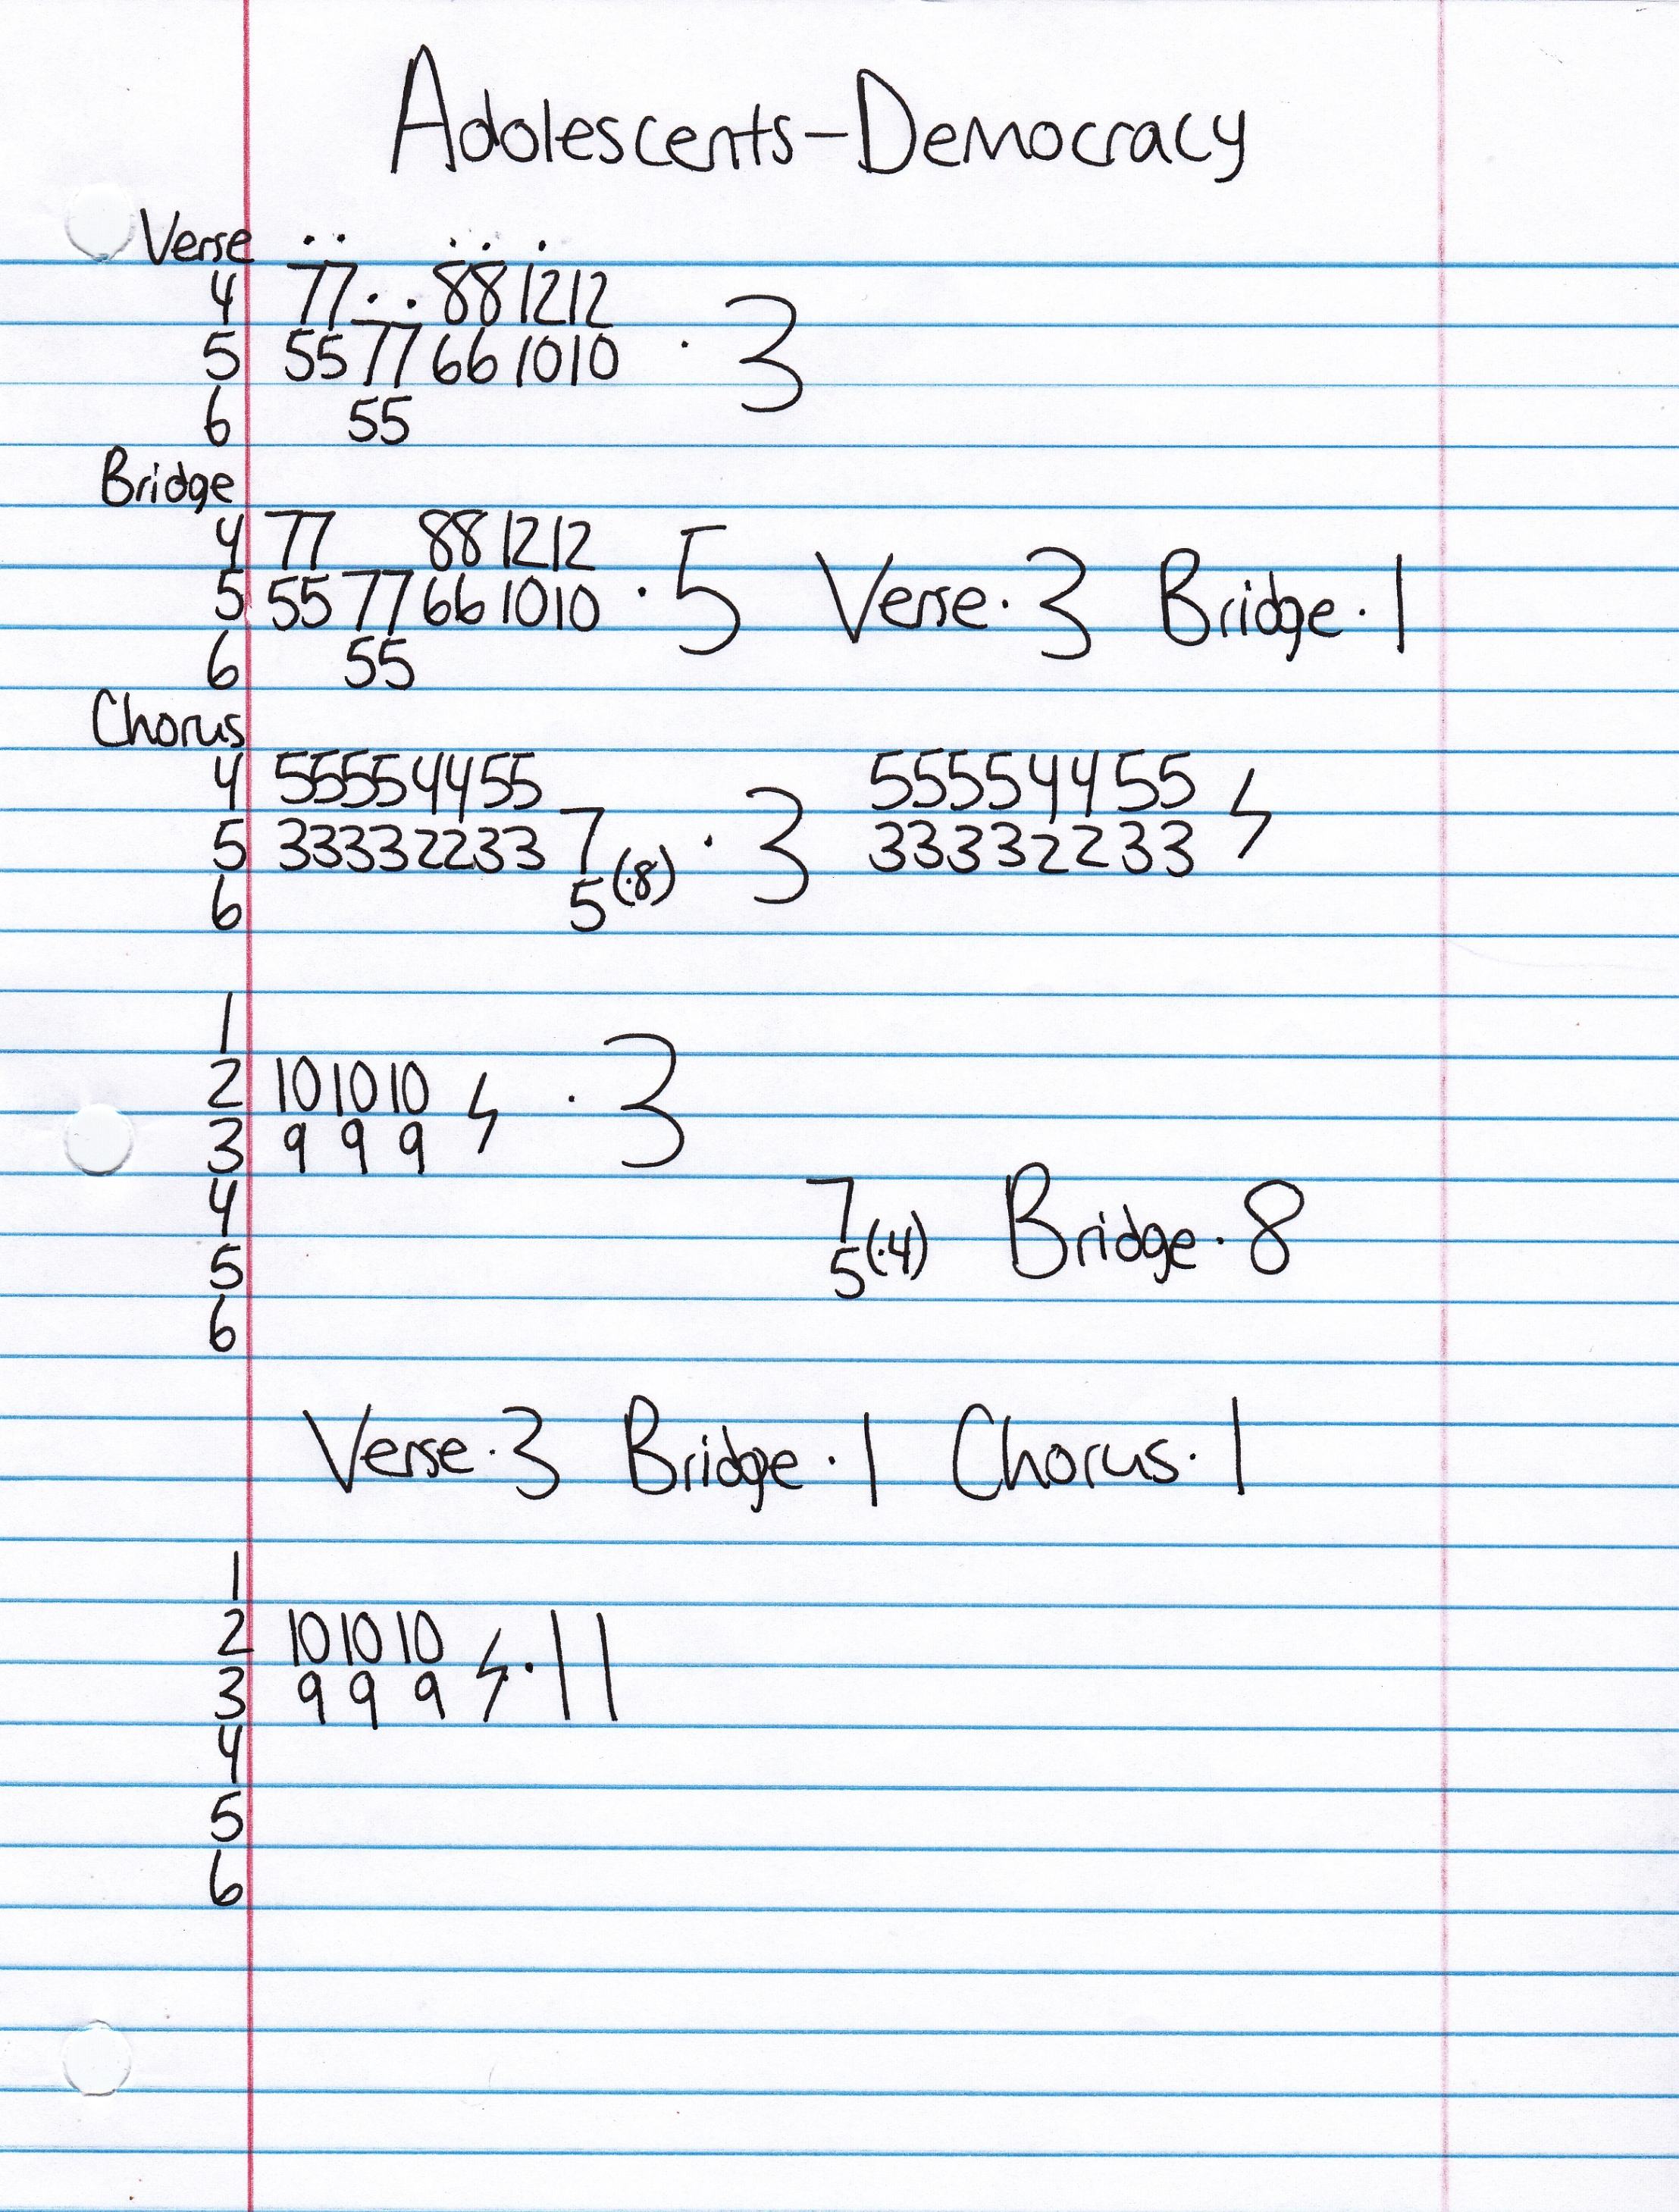 Adolescents-Democracy
Verse
4 77 88 1212
5 55 77 66 1010 · 3
6 55
Bridge
4 77 88 1212
5 55 77 66 1010 · 5 Verse · 3 Bridge · 1
6 55
Chorus
4 55554455 55554455
5 33332233 7 (·8) · 3 33332233
6 5
1
2 10 10 10 · 3
3 9 9 9
4 7
5 5 (·4) Bridge · 8
6
Verse · 3 Bridge · 1 Chorus · 1
1
2 10 10 10
3 9 9 9 · 11
4
5
6